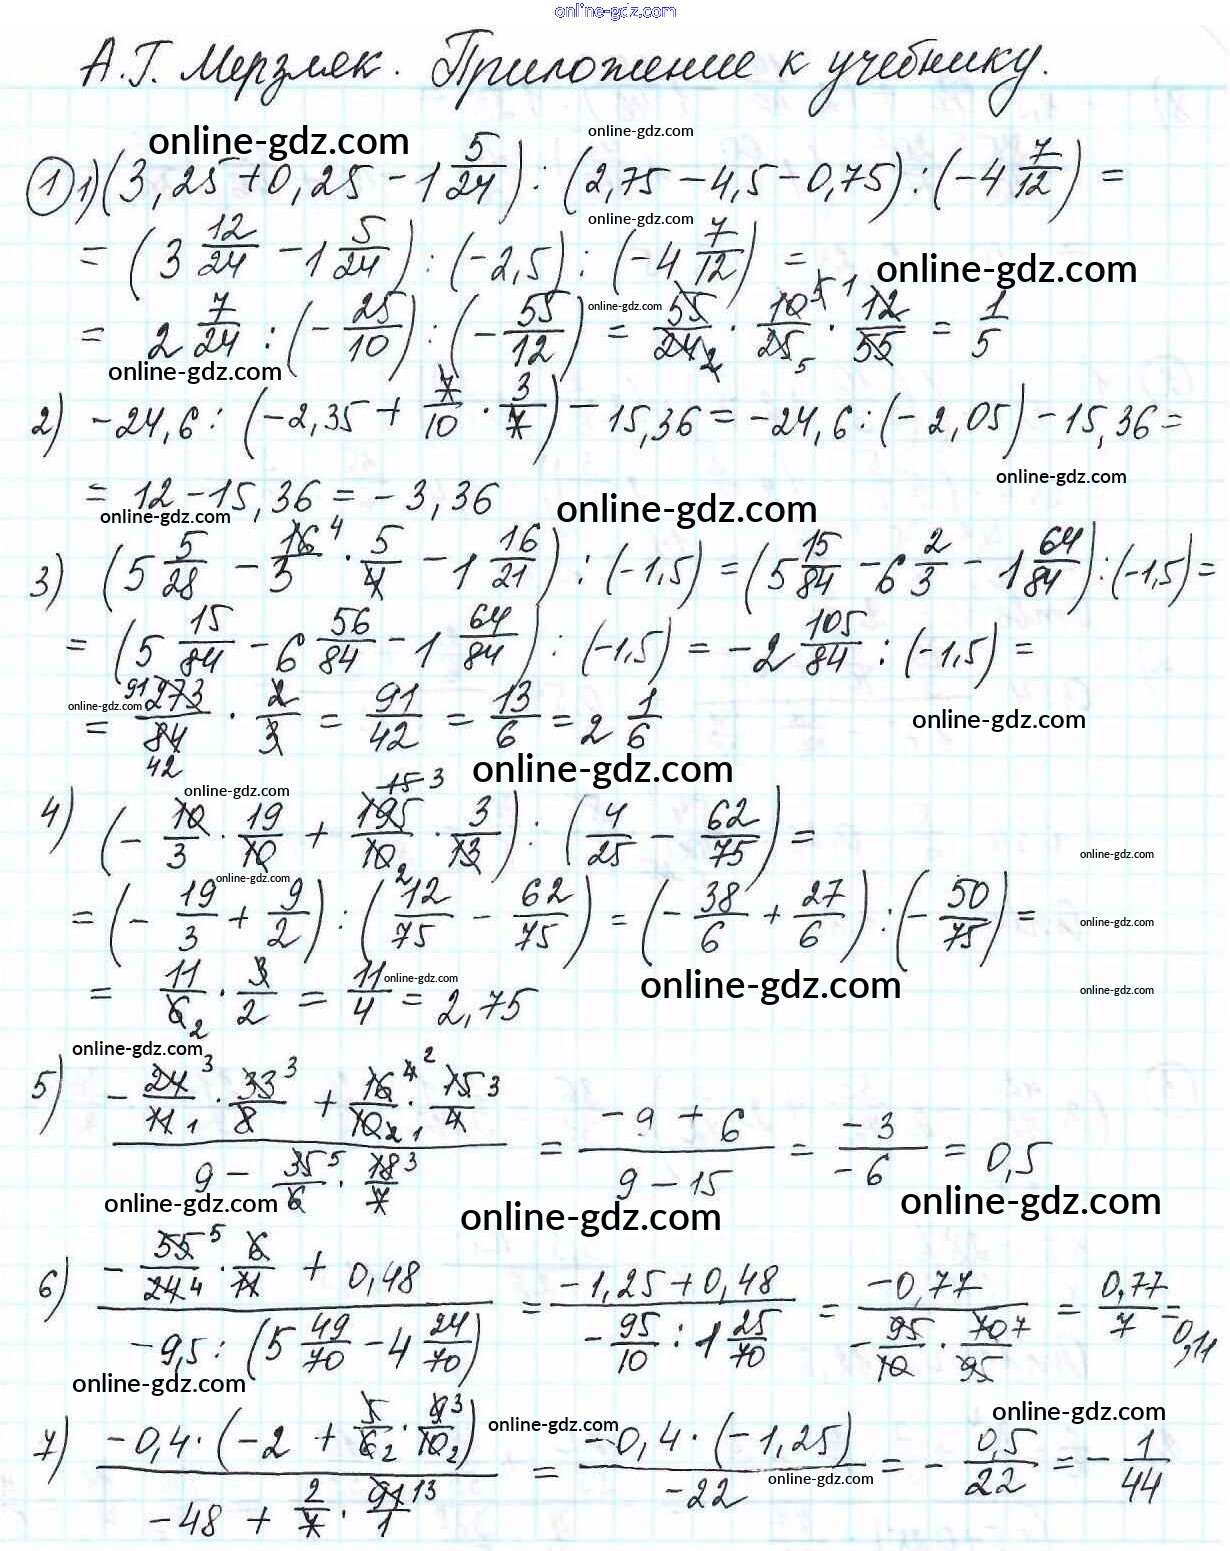 online-gdz.com
А.Г. Мерзляк. Приложение к учебнику.
online-gdz.com online-gdz.com
① 1) (3,25 + 0,25 - 1 5/24) : (2,75 - 4,5 - 0,75) : (-4 7/12) =
online-gdz.com
= (3 12/24 - 1 5/24) : (-2,5) : (-4 7/12) =
online-gdz.com
online-gdz.com
= 2 7/24 : (- 25/10) : (- 55/12) = 55/24 2 · 10 5/25 5 · 1 12/55 = 1/5
online-gdz.com
2) -24,6 : (-2,35 + 7/10 · 3/7) - 15,36 = -24,6 : (-2,05) - 15,36 =
online-gdz.com
= 12 - 15,36 = -3,36
online-gdz.com online-gdz.com
3) (5 5/28 - 16 4/5 · 5/4 - 1 16/21) : (-1,5) = (5 15/84 - 6 2/3 - 1 64/84) : (-1,5) =
= (5 15/84 - 6 56/84 - 1 64/84) : (-1,5) = -2 105/84 : (-1,5) =
online-gdz.com online-gdz.com
= 91 273/84 42 · 2/3 = 91/42 = 13/6 = 2 1/6
online-gdz.com
online-gdz.com
4) (- 10/3 · 19/10 + 195 15 3/10 2 · 3/13) : (4/25 - 62/75) =
online-gdz.com
online-gdz.com
= (- 19/3 + 9/2) : (12/75 - 62/75) = (- 38/6 + 27/6) : (- 50/75) =
online-gdz.com
= 11/6 2 · 3/2 = 11/4 = 2,75
online-gdz.com online-gdz.com online-gdz.com
online-gdz.com
5) (- 24 3/11 1 · 33 3/8 + 16 4 2/10 2 · 15 3/4 1)/(9 - 35 5/6 · 18 3/7) = (-9 + 6)/(9 - 15) = -3/-6 = 0,5
online-gdz.com online-gdz.com online-gdz.com
6) (- 55 5/24 4 · 6/11 + 0,48)/(-9,5 : (5 49/70 - 4 24/70)) = (-1,25 + 0,48)/(- 95/10 : 1 25/70) = -0,77/(- 95/10 · 70 7/95) = 0,77/7 = 0,11
online-gdz.com
online-gdz.com online-gdz.com
7) (-0,4 · (-2 + 5/6 2 · 9 3/10 2))/(-48 + 2/7 · 91 13/1) = (-0,4 · (-1,25))/-22 = - 0,5/22 = - 1/44
online-gdz.com